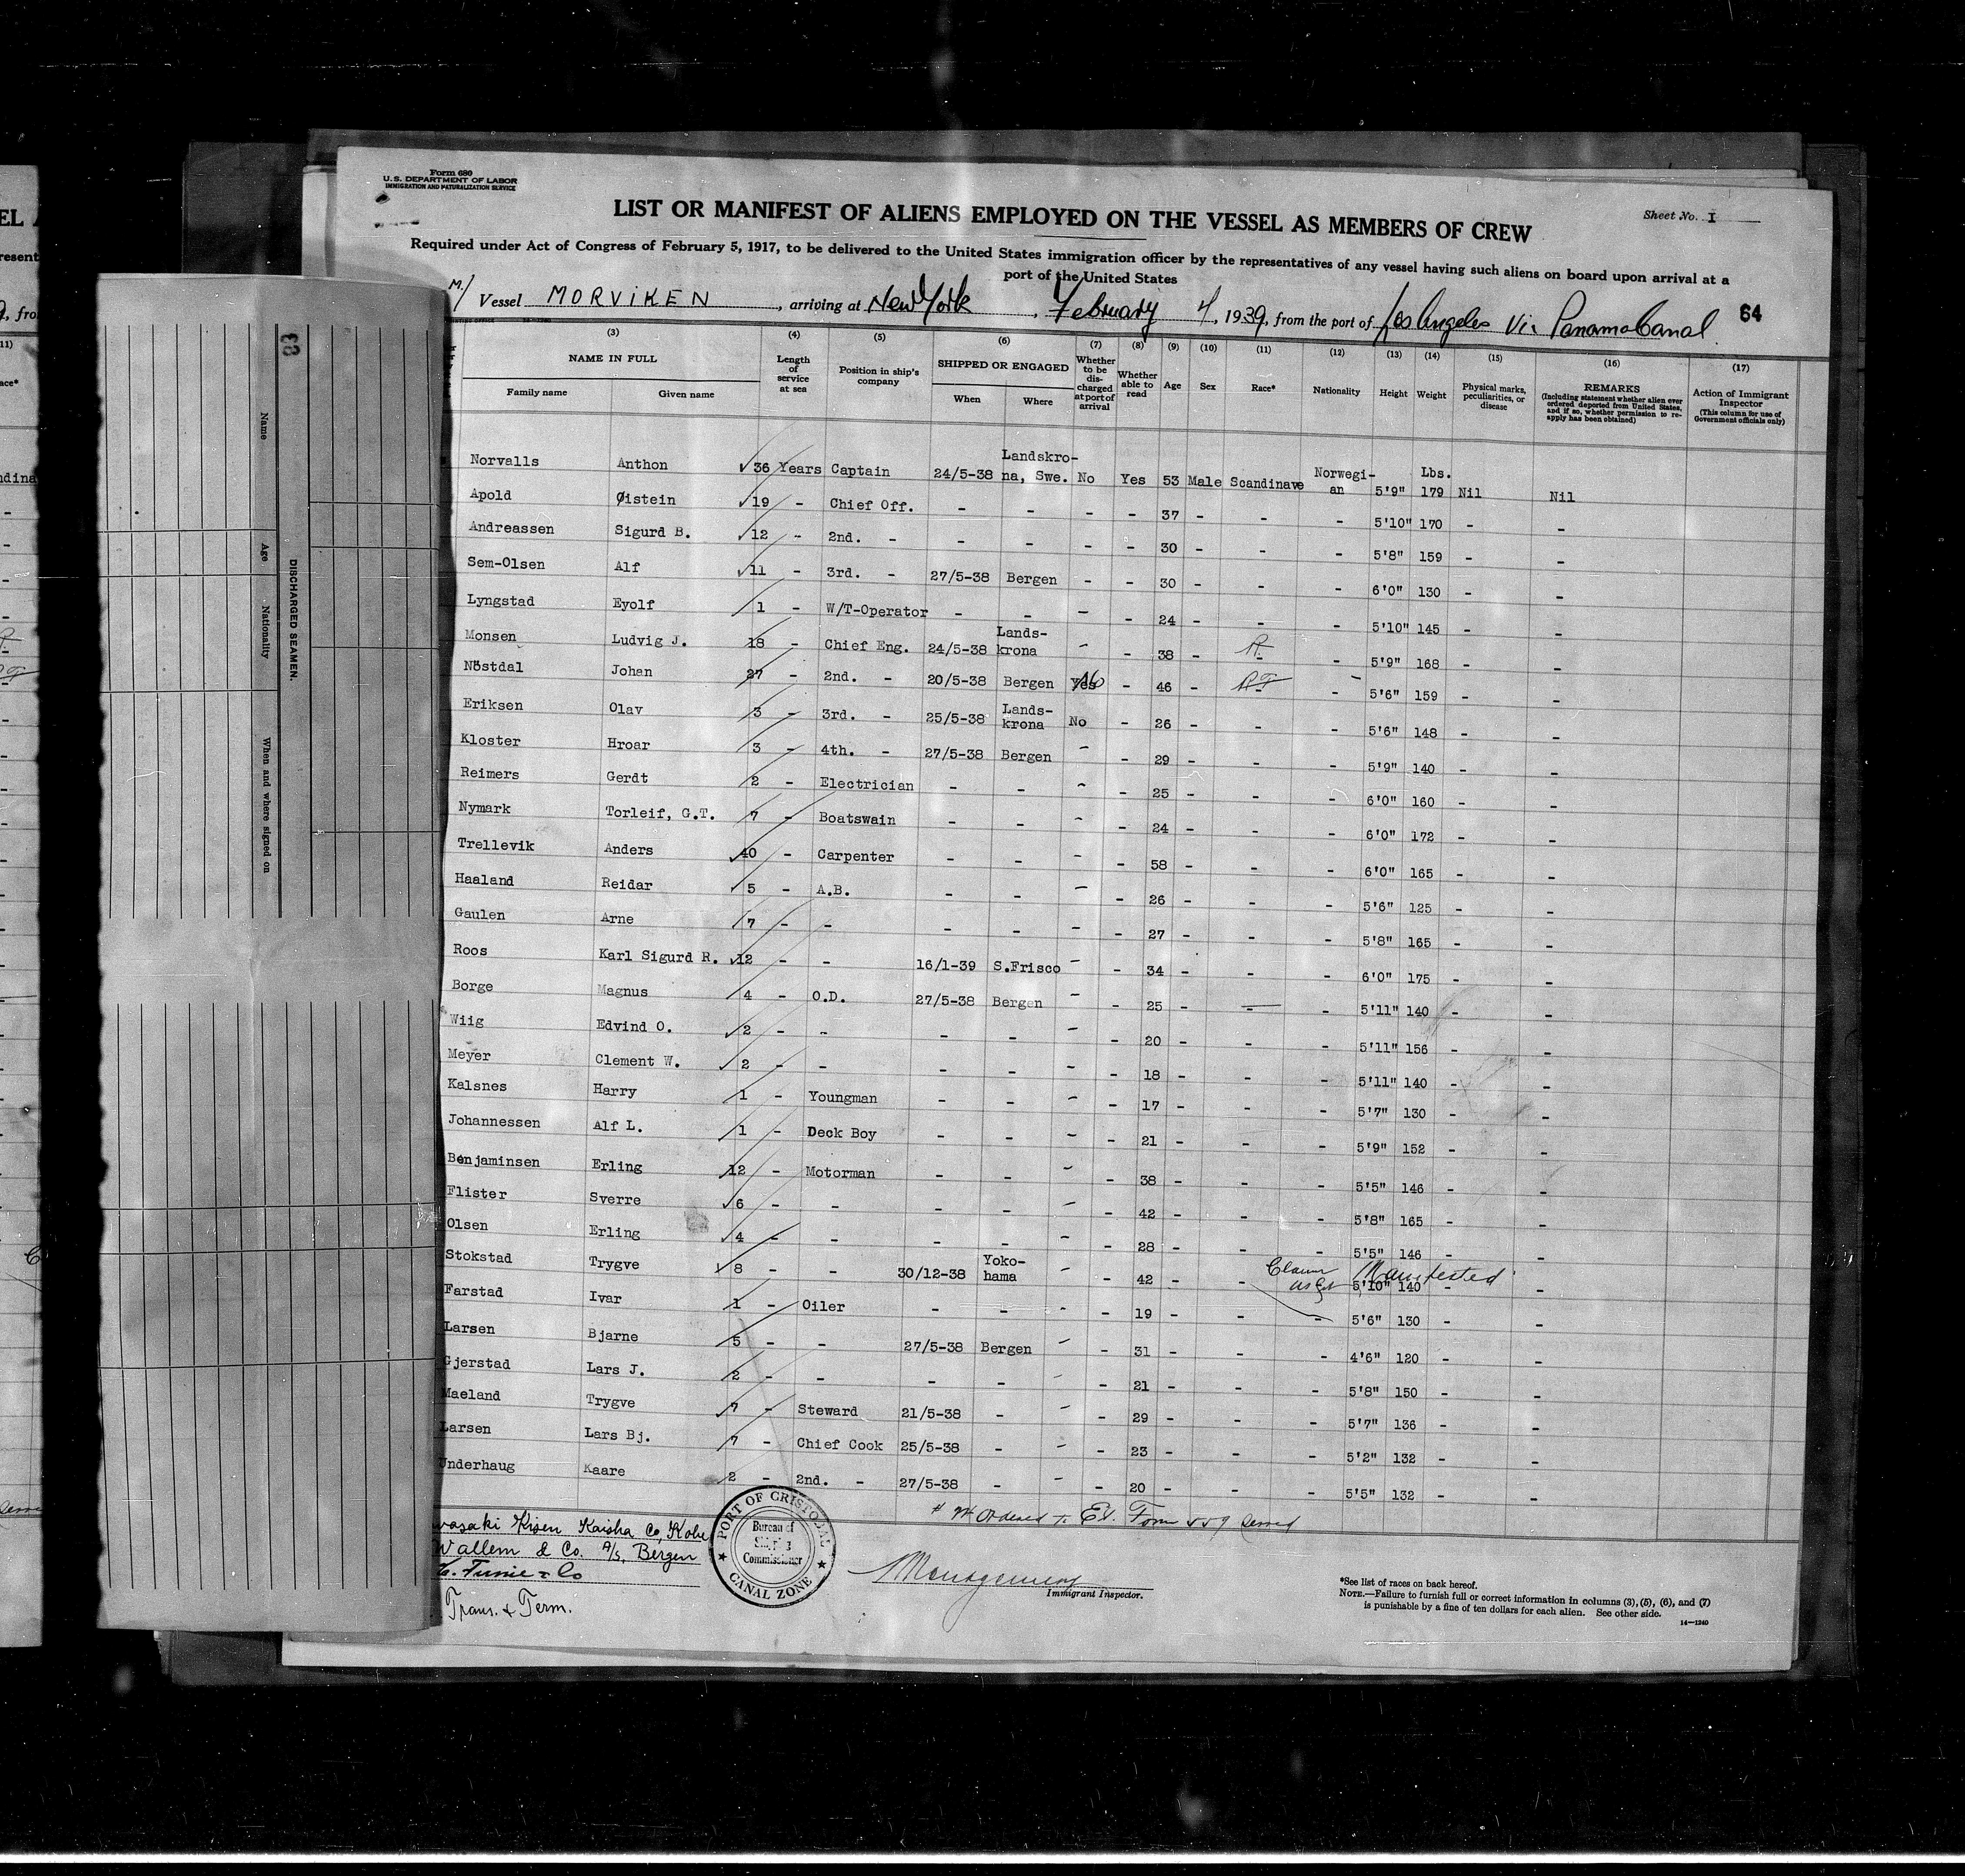 Form 680
U.S. DEPARTMENT OF LABOR
IMMIGRATION AND NATURALIZATION SERVICE
Sheet No. I
LIST OR MANIFEST OF ALIENS EMPLOYED ON THE VESSEL AS MEMBERS OF CREW
Required under Act of Congress of February 5, 1917, to be delivered to the United States immigration officer by the representatives of any vessel having such aliens on board upon arrival at a
port of the United States
M/ Vessel MORVIKEN, arriving at New York, February 4, 1939, from the port of Los Angeles Via Panama Canal 64
(3) (4) (5) (6) (7) (8) (9) (10) (11) (12) (13) (14) (15) (16) (17)
NAME IN FULL Family name Given name
Length of service at sea
Position in ship's company
SHIPPED OR ENGAGED When Where
Whether to be discharged at port of arrival
Whether able to read
Age Sex Race* Nationality Height Weight
Physical marks, peculiarities, or disease
REMARKS (Including statement whether alien ever ordered deported from United States, and if so, whether permission to reapply has been obtained)
Action of Immigrant Inspector (This column for use of Government officials only)
Norvalls Anthon 36 Years Captain 24/5-38 Landskro-na, Swe. No Yes 53 Male Scandinave Norwegi-an 5'9" Lbs. 179 Nil Nil
Apold Øistein 19 - Chief Off. - - - - 37 - - - 5'10" 170 - -
Andreassen Sigurd B. 12 - 2nd. - - - - - 30 - - - 5'8" 159 - -
Sem-Olsen Alf 11 - 3rd. - 27/5-38 Bergen - - 30 - - - 6'0" 130 - -
Lyngstad Eyolf 1 - W/T-Operator - - - - 24 - - - 5'10" 145 - -
Monsen Ludvig J. 18 - Chief Eng. 24/5-38 Lands-krona - - 38 - - - 5'9" 168 - -
Nöstdal Johan 27 - 2nd. - 20/5-38 Bergen Yes No - 46 - - - 5'6" 159 - -
Eriksen Olav 3 - 3rd. - 25/5-38 Lands-krona No - 26 - - - 5'6" 148 - -
Kloster Hroar 3 - 4th. - 27/5-38 Bergen - - 29 - - - 5'9" 140 - -
Reimers Gerdt 2 - Electrician - - - - 25 - - - 6'0" 160 - -
Nymark Torleif, G.T. 7 - Boatswain - - - - 24 - - - 6'0" 172 - -
Trellevik Anders 40 - Carpenter - - - - 58 - - - 6'0" 165 - -
Haaland Reidar 5 - A.B. - - - - 26 - - - 5'6" 125 - -
Gaulen Arne 7 - - - - - - 27 - - - 5'8" 165 - -
Roos Karl Sigurd R. 12 - - 16/1-39 S.Frisco - - 34 - - - 6'0" 175 - -
Borge Magnus 4 - O.D. 27/5-38 Bergen - - 25 - - - 5'11" 140 - -
Wiig Edvind O. 2 - - - - - - 20 - - - 5'11" 156 - -
Meyer Clement W. 2 - - - - - - 18 - - - 5'11" 140 - -
Kalsnes Harry 1 - Youngman - - - - 17 - - - 5'7" 130 - -
Johannessen Alf L. 1 - Deck Boy - - - - 21 - - - 5'9" 152 - -
Benjaminsen Erling 12 - Motorman - - - - 38 - - - 5'5" 146 - -
Flister Sverre 6 - - - - - - 42 - - - 5'8" 165 - -
Olsen Erling 4 - - - - - - 28 - - - 5'5" 146 - -
Stokstad Trygve 8 - - 30/12-38 Yoko-hama - - 42 - - 5'10" 140 - -
Manifested
Farstad Ivar 1 - Oiler - - - - 19 - - - 5'6" 130 - -
Larsen Bjarne 5 - - 27/5-38 Bergen - - 31 - - - 4'6" 120 - -
Gjerstad Lars J. 2 - - - - - - 21 - - - 5'8" 150 - -
Maeland Trygve 7 - Steward 21/5-38 - - - 29 - - - 5'7" 136 - -
Larsen Lars Bj. 7 - Chief Cook 25/5-38 - - - 23 - - - 5'2" 132 - -
Underhaug Kaare 2 - 2nd. - 27/5-38 - - - 20 - - - 5'5" 132 - -
Ordered to Form 559 served
wasaki Kisen Kaisha Co, Kobe
Wallem & Co. A/S, Bergen
Trans. & Term.
PORT OF CRISTOBAL
Bureau of
Shipping
Commissioner
CANAL ZONE
Montgomery
Immigrant Inspector.
*See list of races on back hereof.
NOTE.—Failure to furnish full or correct information in columns (3), (5), (6), and (7)
is punishable by a fine of ten dollars for each alien. See other side.
14—1240
63
DISCHARGED SEAMEN.
Name
Age
Nationality
When and where signed on